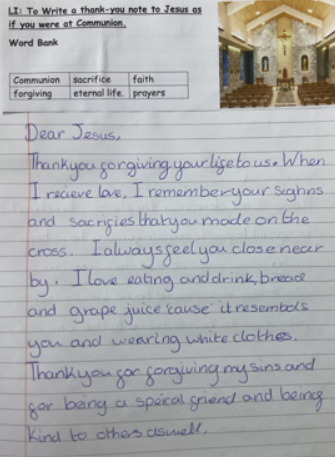 LI: To Write a thank-you note to Jesus as
if you were at Communion.
Word Bank
Communion sacrifice faith
forgiving eternal life. prayers
Dear Jesus,
Thankyou for giving your life to us. When
I recieve love, I remember your sighns
and sacrifies that you made on the
cross. I always feel you close near
by. I love eating and drink, bread
and grape juice 'cause' it resembols
you and wearing white clothes.
Thank you for forgiving my sins and
for being a speical friend and being
kind to others aswell.